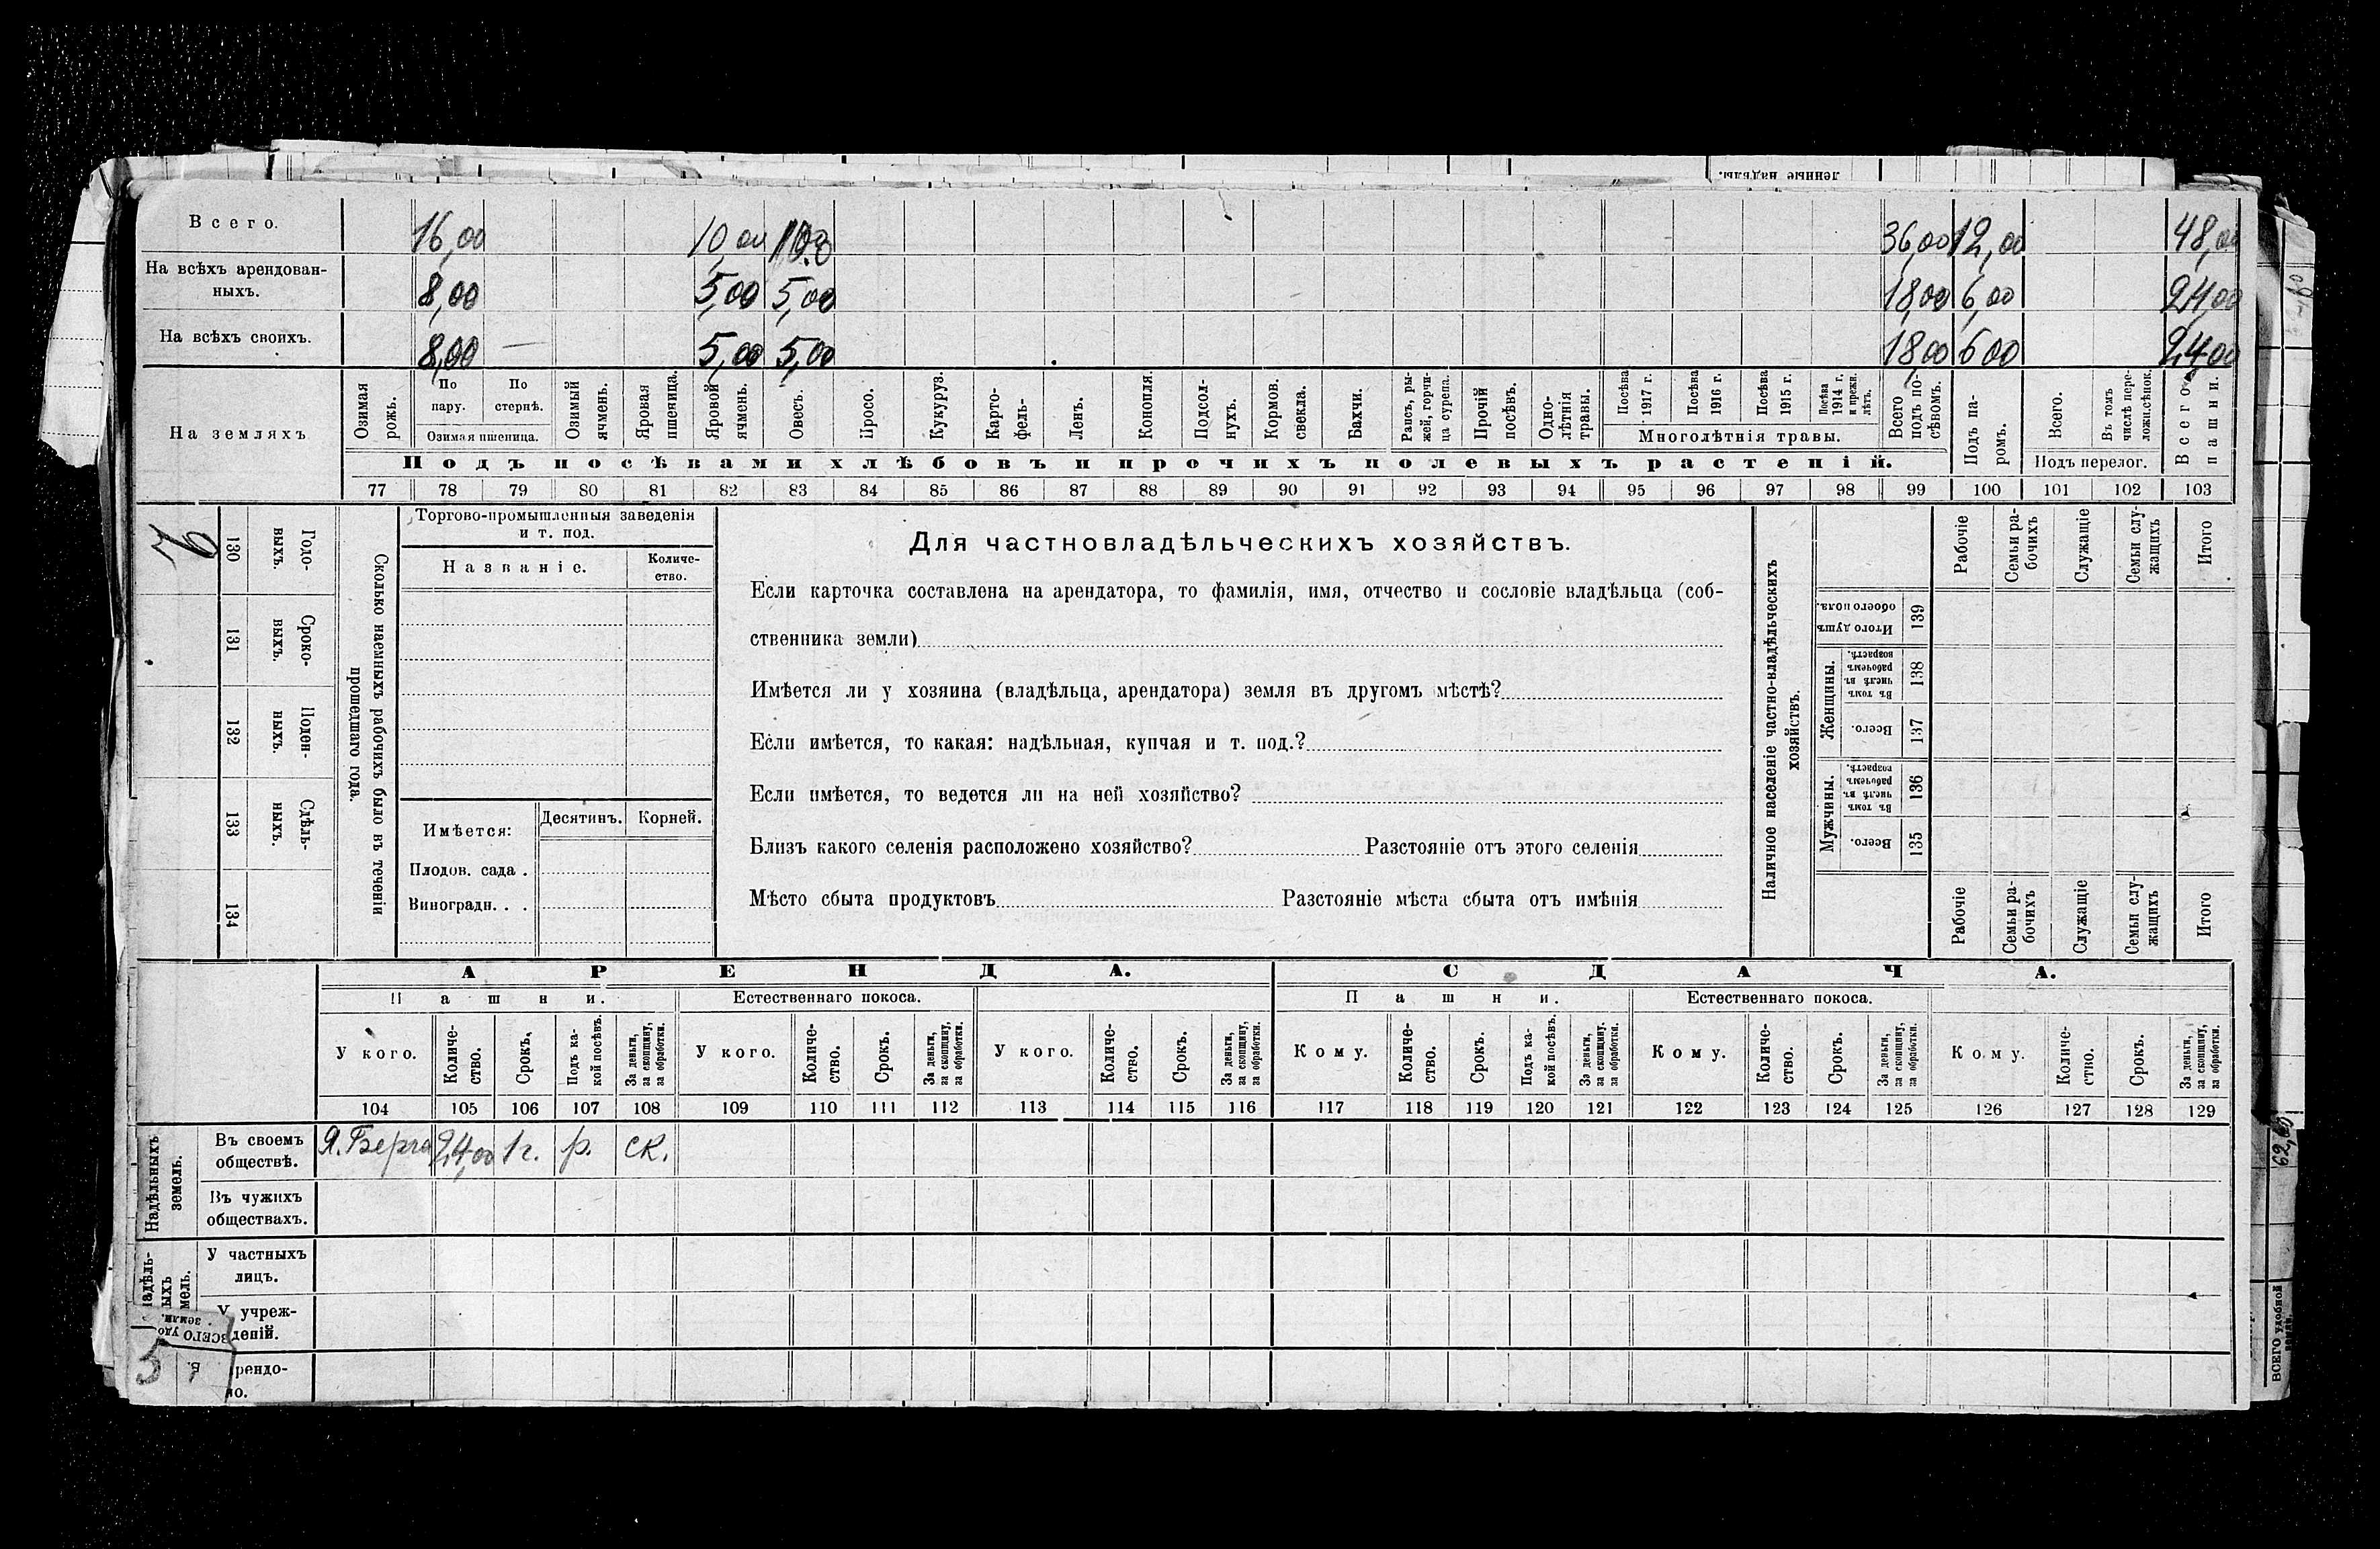 ленные надѣлы.
Всего. 16,00 10,00 36,00 12,00 48,00
На всѣхъ арендован-
ныхъ. 8,00 5,00 5,00 18,00 6,00 24,00
На всѣхъ своихъ. 8,00 — 5,00 5,00 18,00 6 00 24 00
На земляхъ
Озимая рожь.
По пару.
По стернѣ.
Озимая пшеница.
Озимый ячмень.
Яровая пшеница.
Яровой ячмень.
Овесъ.
Просо.
Кукуруз.
Карто-
фель-
Ленъ.
Конопля.
Подсол-
нухъ.
Кормов.
свекла.
Бахчи.
Рапсъ, ры-
жей, горчи-
ца сурепа.
Прочій
посѣвъ.
Одно-
лѣтнія
травы.
Посѣва
1917 г.
Посѣва
1916 г.
Посѣва
1915 г.
Посѣва
1914 г.
и прежн.
лѣтъ.
Многолѣтнія травы.
Всего
подъ по-
сѣвомъ.
Подъ па-
ромъ.
Всего.
Въ томъ
числѣ пере-
ложн.сѣнок.
Подъ перелог.
Всего
пашни.
Подъ посѣвами хлѣбовъ и прочихъ полевыхъ растеній.
77 78 79 80 81 82 83 84 85 86 87 88 89 90 91 92 93 94 95 96 97 98 99 100 101 102 103
130 Годо-
выхъ.
131 Сроко-
выхъ.
132 Поден-
ныхъ.
133 Сдѣль-
ныхъ.
134
Сколько наемныхъ рабочихъ было въ теченіи
прошедшаго года.
Торгово-промышленныя заведенія
и т. под.
Названіе.
Количе-
ство.
Имѣется:
Десятинъ. Корней.
Плодов. сада .
Виноградн. . .
Для частновладѣльческихъ хозяйствъ.
Если карточка составлена на арендатора, то фамилія, имя, отчество и сословіе владѣльца (соб-
ственника земли)
Имѣется ли у хозяина (владѣльца, арендатора) земля въ другомъ мѣстѣ?
Если имѣется, то какая: надѣльная, купчая и т. под.?
Если имѣется, то ведется ли на ней хозяйство?
Близъ какого селенія расположено хозяйство? Разстояніе отъ этого селенія
Мѣсто сбыта продуктовъ Разстояніе мѣста сбыта отъ имѣнія
Наличное населеніе частно-владѣльческихъ
хозяйствъ.
Рабочіе
Семьи ра-
бочихъ
Служащіе
Семьи слу-
жащихъ
Итого
Итого душъ
обоего пола.
139
Женщины.
Въ томъ
числѣ въ
рабочемъ
возрастѣ.
138
Всего.
137
Мужчины.
Въ томъ
числѣ въ
рабочемъ
возрастѣ.
136
Всего.
135
Рабочіе
Семьи ра-
бочихъ
Служащіе
Семьи слу-
жащихъ
Итого
АРЕНДА. СДАЧА.
Пашни. Естественнаго покоса. Пашни. Естественнаго покоса.
У кого.
Количе-
ство.
Срокъ.
Подъ ка-
кой посѣвъ.
За деньги,
за скопщину,
за обработки.
У кого.
Количе-
ство.
Срокъ.
За деньги,
за скопщину,
за обработки.
У кого.
Количе-
ство.
Срокъ.
За деньги,
за скопщину,
за обработки.
Кому.
Количе-
ство.
Срокъ.
Подъ ка-
кой посѣвъ.
За деньги,
за скопщину.
за обработки.
Кому.
Количе-
ство.
Срокъ.
За деньги,
за скопщину,
за обработки.
Кому.
Количе-
ство.
Срокъ.
За деньги,
за скопщину,
за обработки.
104 105 106 107 108 109 110 111 112 113 114 115 116 117 118 119 120 121 122 123 124 125 126 127 128 129
Надѣльныхъ
земель.
Въ своемъ
обществѣ. Я. Берга 24,00 1 г. р. ск.
Въ чужихъ
обществахъ.
У частныхъ
лицъ.
У учреж-
деній.
ВСЕГО удо
земли.
5
рендо-
но.
62,00
ВСЕГО удобной
земли.